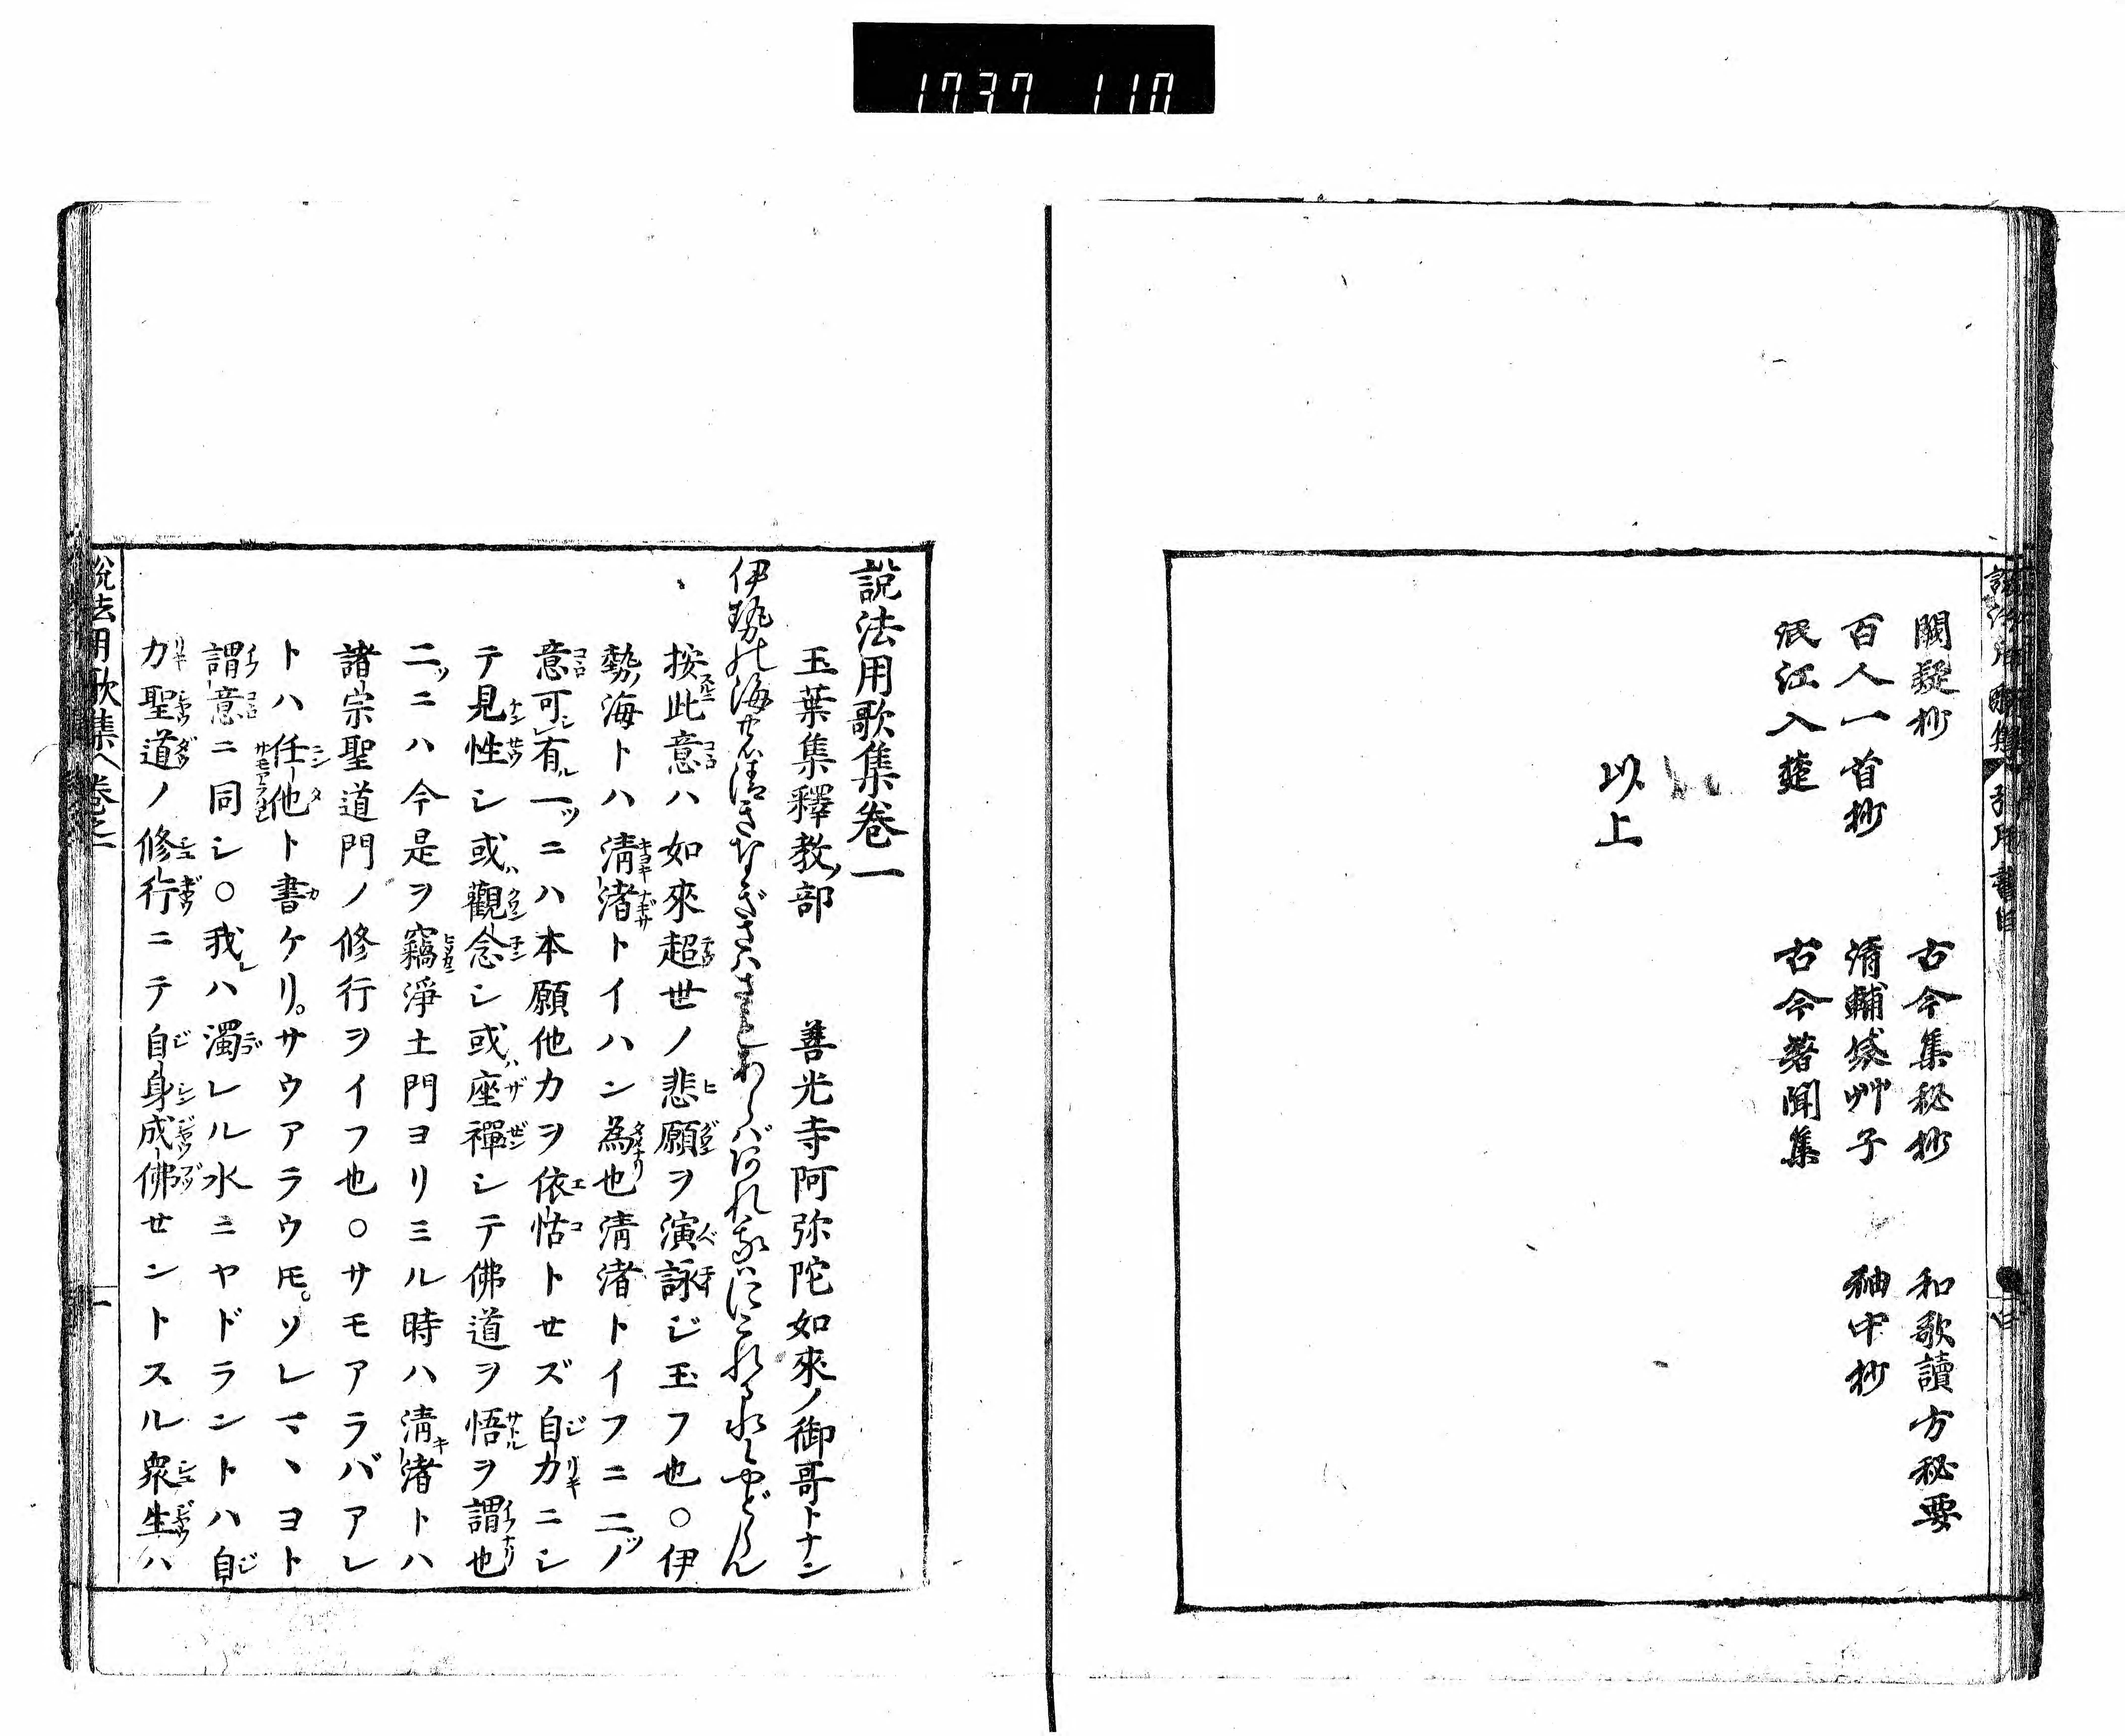 1737 110
闕疑抄 古今集秘抄 和歌讀方秘要
百人一首抄 清輔袋艸子 袖中抄
泯江入楚 古今著聞集
以上
說法用歌集卷一
玉葉集釋教ノ部 善光寺阿弥陀如來ノ御哥トナン
伊勢の海の清きなぎさはさもあらばあれ我はにごれる水にやどらん
按此意ハ如來超世ノ悲願ヲ演詠ジ玉フ也○伊
勢ノ海トハ清渚トイハン為也清渚トイフニ二ツノ
意可シ有ル一ツニハ本願他力ヲ依怙トせズ自力ニシ
テ見性シ或ハ觀念シ或ハ座禪シテ佛道ヲ悟ヲ謂也
二ツニハ今是ヲ竊淨土門ヨリミル時ハ清キ渚トハ
諸宗聖道門ノ修行ヲイフ也○サモアラバアレ
トハ任他ト書ケリ。サウアラウ𪜈。ソレマヽヨト
謂意ニ同シ○我レハ濁レル水ニヤドラントハ自
力聖道ノ修行ニテ自身成佛せントスル衆生ハ
說法用歌集 卷之一 一